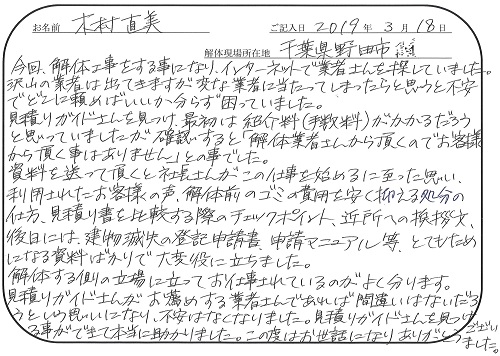 お名前 木村直美 ご記入日 2019年3月18日
解体現場所在地 千葉県野田市
今回、解体工事をする事になり、インターネットで業者さんを探していました。
沢山の業者は出てきますが変な業者に当たってしまったらと思うと不安
でどこに頼めばいいか分らず困っていました。
見積りガイドさんを見つけ、最初は紹介料(手数料)がかかるだろう
と思っていましたが確認すると「解体業者さんから頂くのでお客様
から頂く事はありません」との事でした。
資料を送って頂くと社長さんがこの仕事を始めるに至った思い、
利用されたお客様の声、解体前のゴミの費用を安く抑える処分の
仕方、見積り書を比較する際のチェックポイント、近所への挨拶文、
後日には、建物滅失の登記申請書、申請マニュアル等、とてもため
になる資料ばかりで大変役に立ちました。
解体する側の立場に立ってお仕事されているのがよく分ります。
見積りガイドさんがお薦めする業者さんであれば間違いはないだろ
うという思いになり、不安はなくなりました。見積りガイドさんを見つけ
る事ができて本当に助かりました。この度はお世話になりありがとうござい
ました。